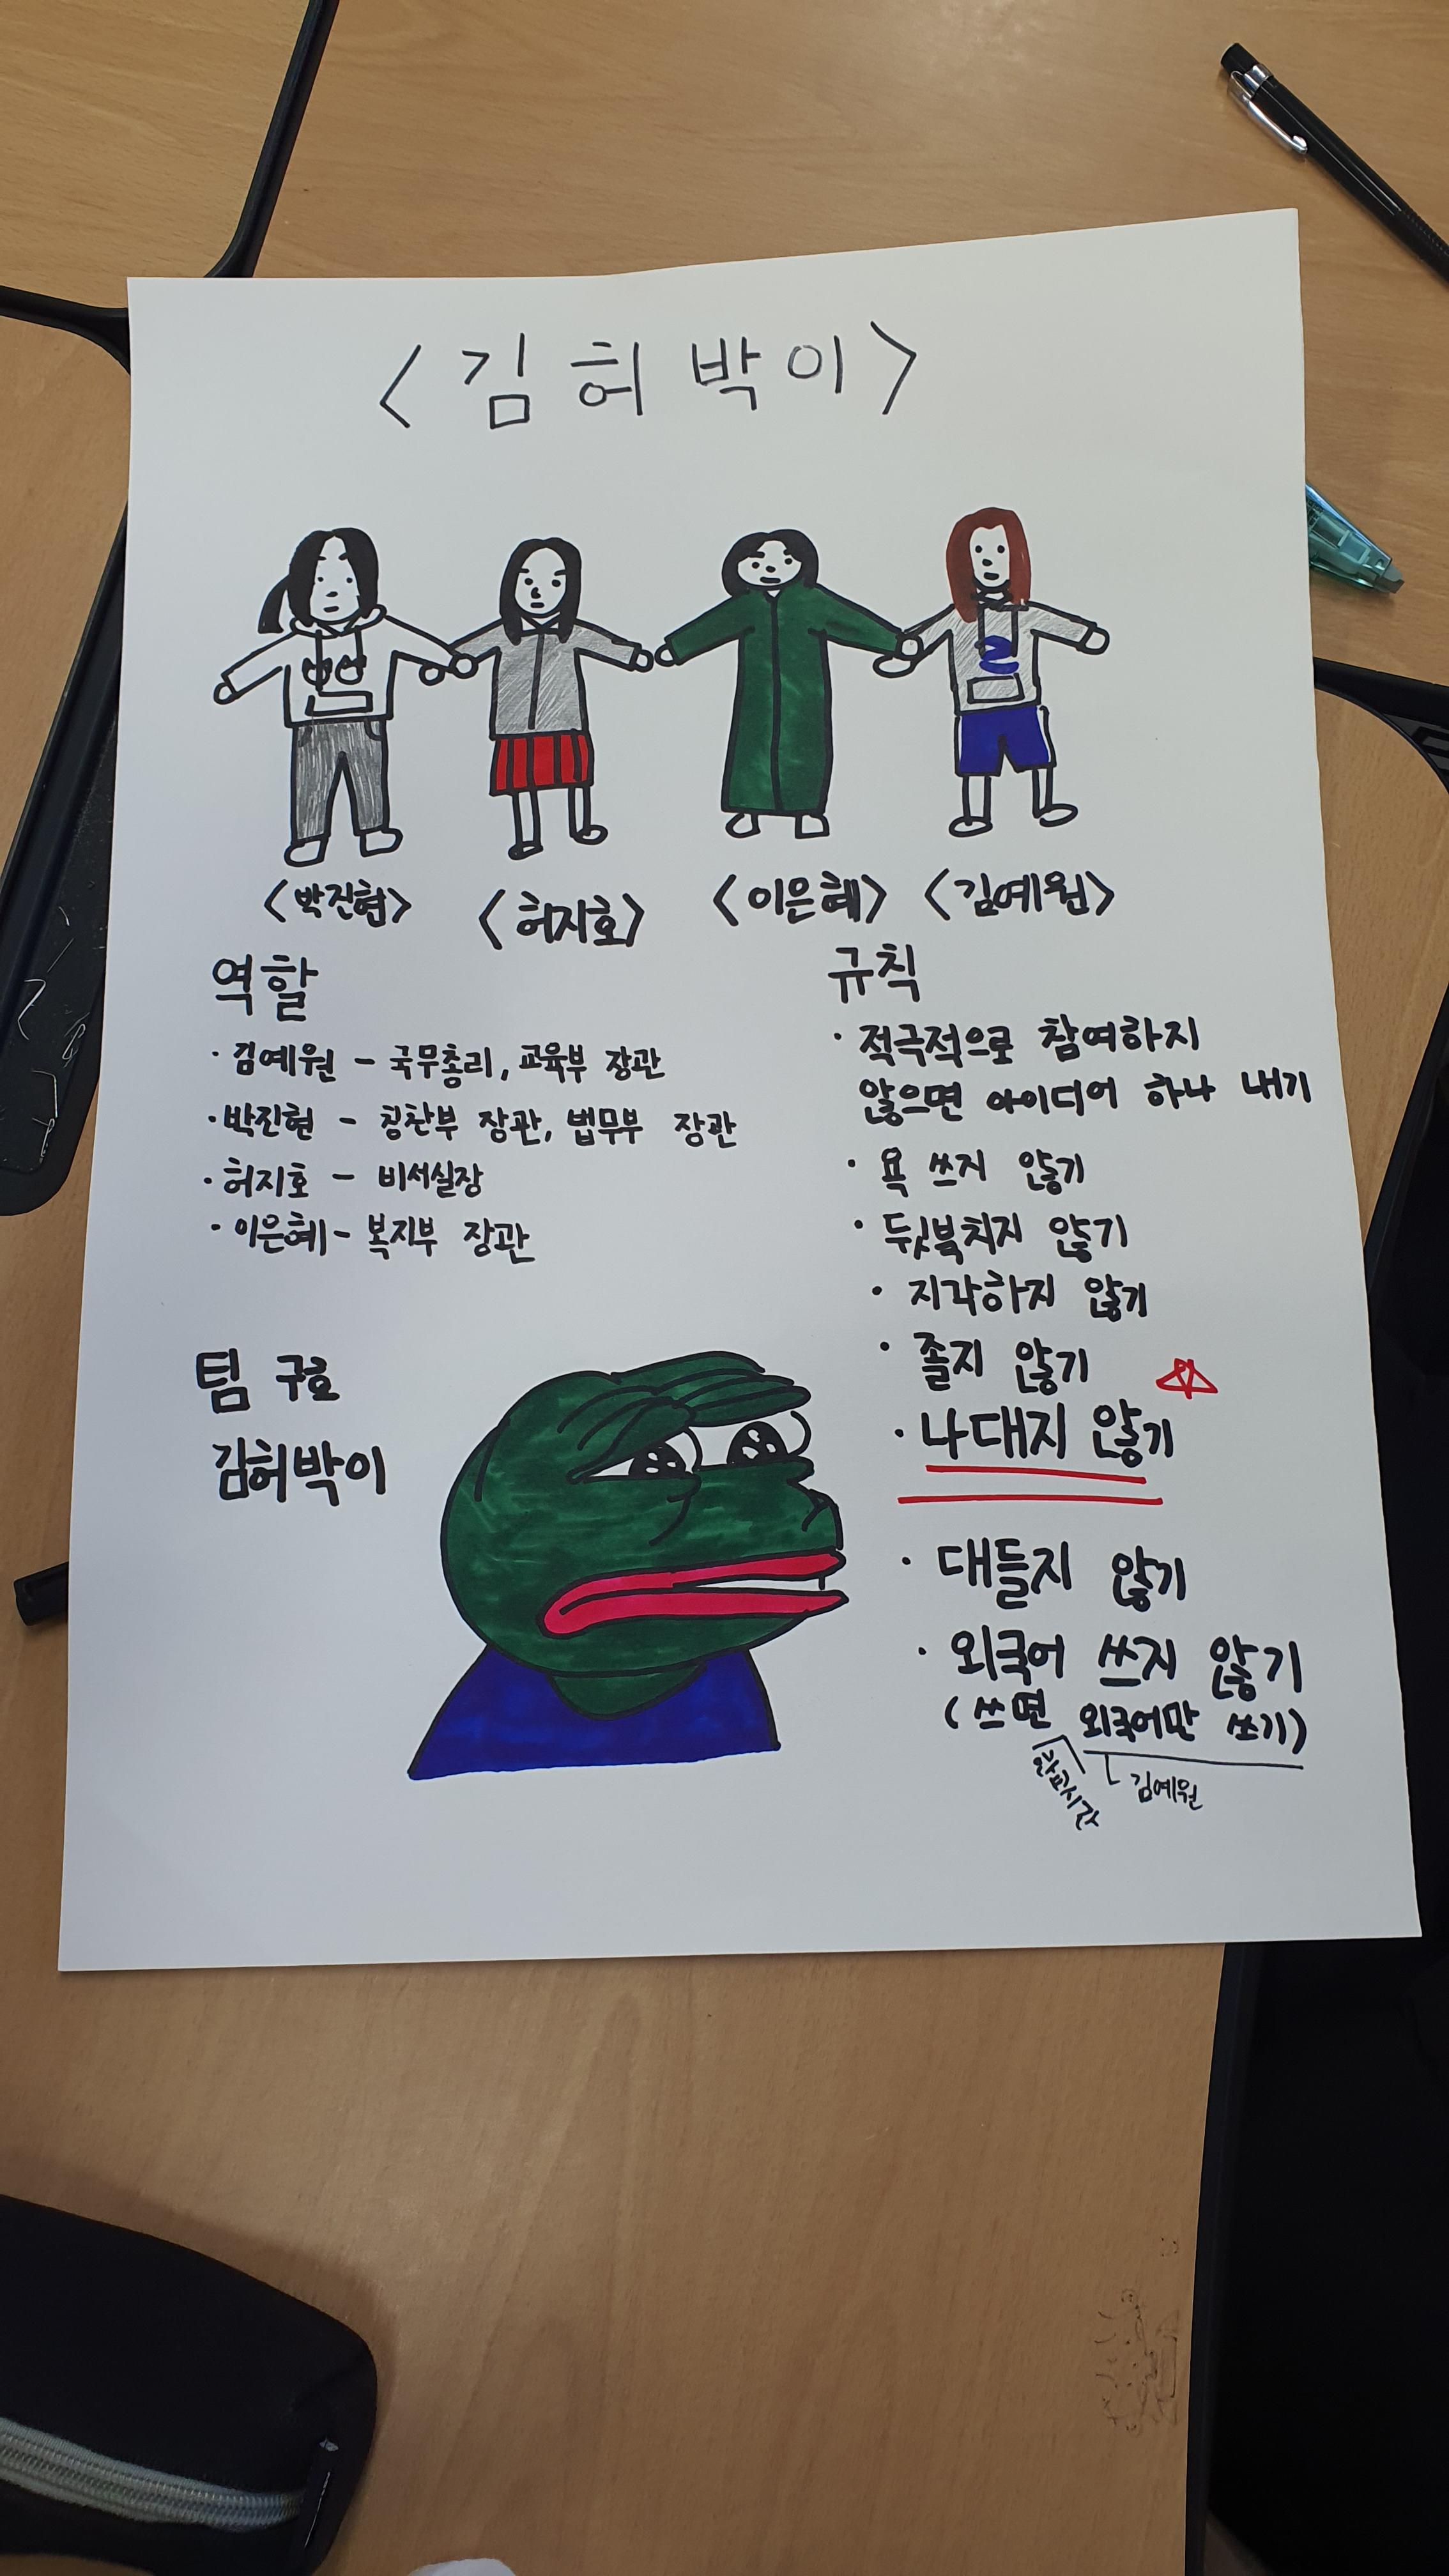 <김허박이>
<박진현> <허지호> <이은혜> <김예원>
역할
· 김예원 - 국무총리, 교육부 장관
· 박진현 - 칭찬부 장관, 법무부 장관
· 허지호 - 비서실장
· 이은혜 - 복지부 장관
팀 구호
김허박이
규칙
· 적극적으로 참여하지
않으면 아이디어 하나 내기
· 욕 쓰지 않기
· 뒷북치지 않기
· 지각하지 않기
· 졸지 않기
· 나대지 않기
· 대들지 않기
· 외국어 쓰지 않기
(쓰면 외국어만 쓰기)
학교시간
김예원